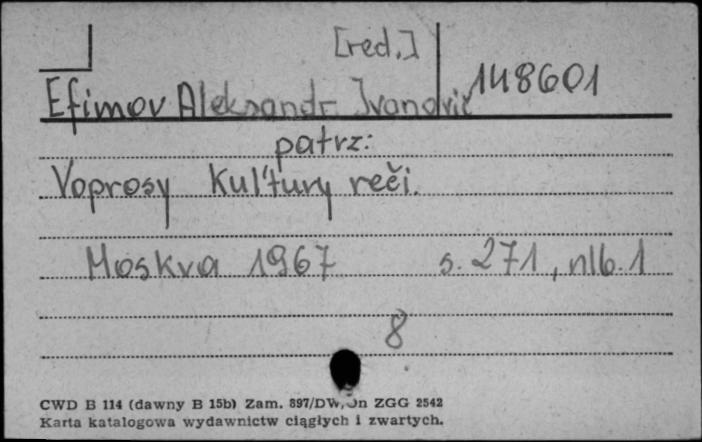 [red.]
148601
Efimov Aleksandr Ivanovič
patrz:
Voprosy kul'tury reči.
Moskva 1967 s. 271, nlb. 1
8
CWD B 114 (dawny B 15b) Zam. 897/DW/Jn ZGG 2542
Karta katalogowa wydawnictw ciągłych i zwartych.